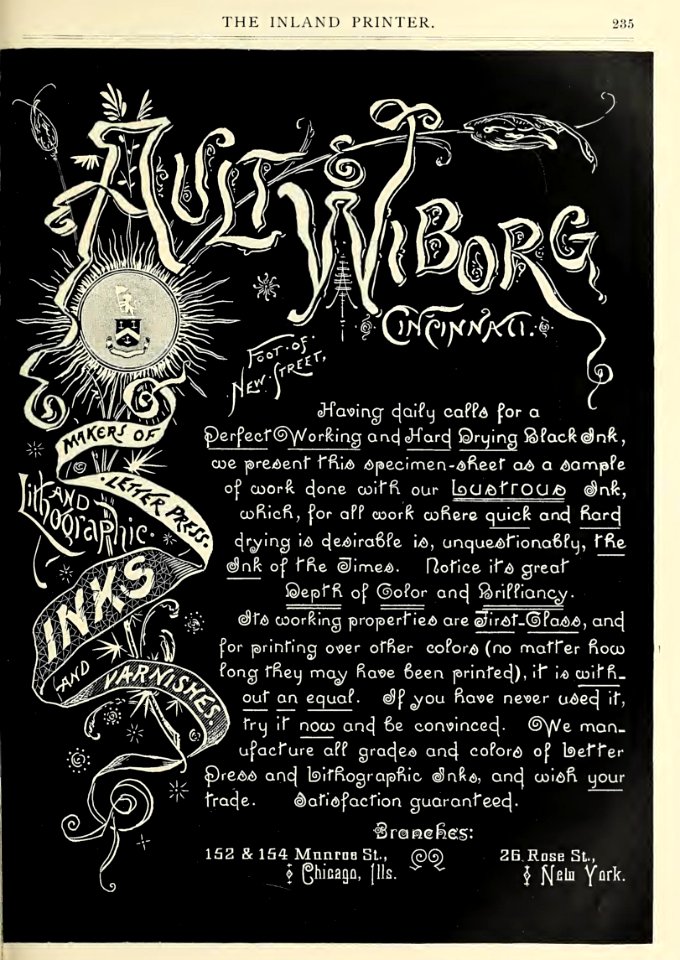 THE INLAND PRINTER.
235
AULT
WIBORG
CINCINNATI.
FOOT OF
NEW STREET,
MAKERS OF
LETTER PRESS.
AND
Lithographic.
INKS
AND
VARNISHES.
Having daily calls for a
Perfect Working and Hard Drying Black Ink,
we present this specimen-sheet as a sample
of work done with our Lustrous Ink,
which, for all work where quick and hard
drying is desirable is, unquestionably, the
Ink of the Times. Notice its great
Depth of Color and Brilliancy.
Its working properties are First-Class, and
for printing over other colors (no matter how
long they may have been printed), it is with-
out an equal. If you have never used it,
try it now and be convinced. We man-
ufacture all grades and colors of Letter
Press and Lithographic Inks, and wish your
trade. Satisfaction guaranteed.
Branches:
152 & 154 Monroe St.,
Chicago, Ills.
26 Rose St.,
New York.